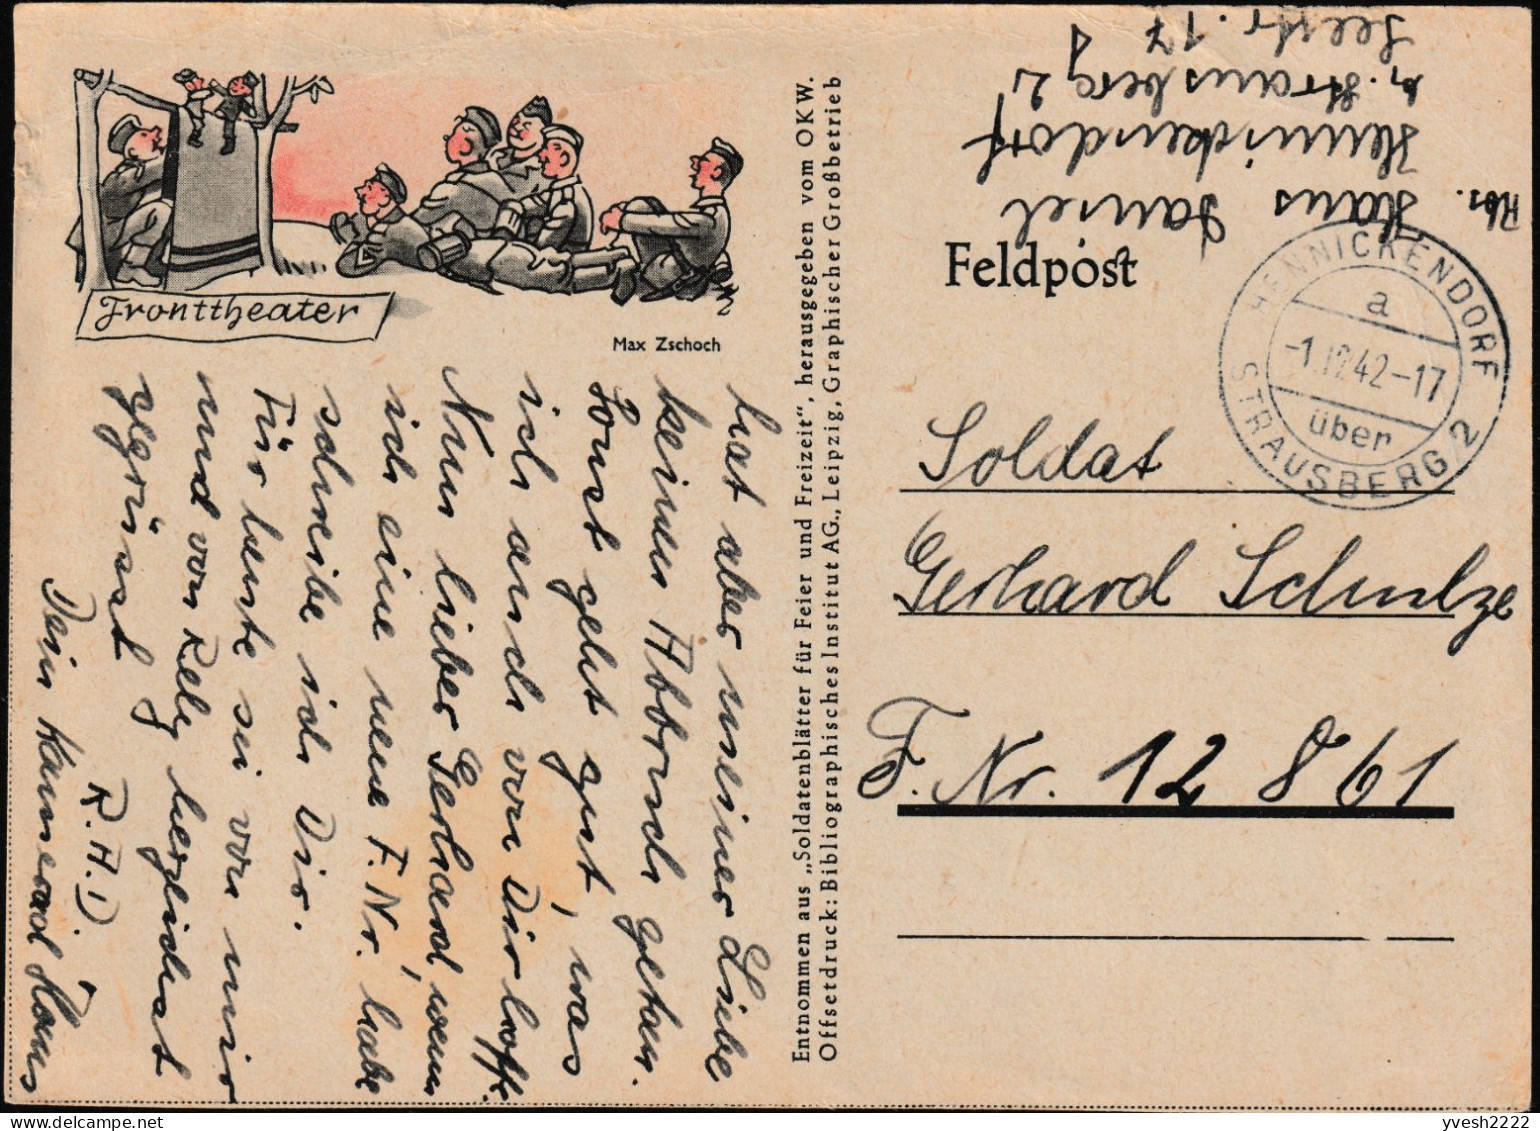 Fronttheater
Max Zschoch
hat aber unserer Liebe
keinen Abbruch getan.
Sonst geht gut, was
ich auch von Dir hoffe.
Nun lieber Gerhard, wenn
ich eine neue F. Nr. habe
schreibe ich Dir.
Für heute sei von mir
und von Rely herzlichst
gegrüsst
R. H. D.
Dein Kamerad Hans
Entnommen aus „Soldatenblätter für Feier und Freizeit“, herausgegeben vom OKW.
Offsetdruck: Bibliographisches Institut AG., Leipzig, Graphischer Großbetrieb
Abs. Hans
Hennickendorf
b. Strausberg 2
Seestr. 17
Feldpost
HENNICKENDORF
a
-1.12.42-17
über
STRAUSBERG 2
Soldat
Gerhard Schulze
F. Nr. 12 861
yvesh2222